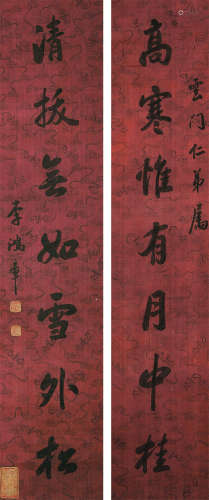 雲门仁弟属
高寒惟有月中桂
清拔無如雪外松
李鴻章